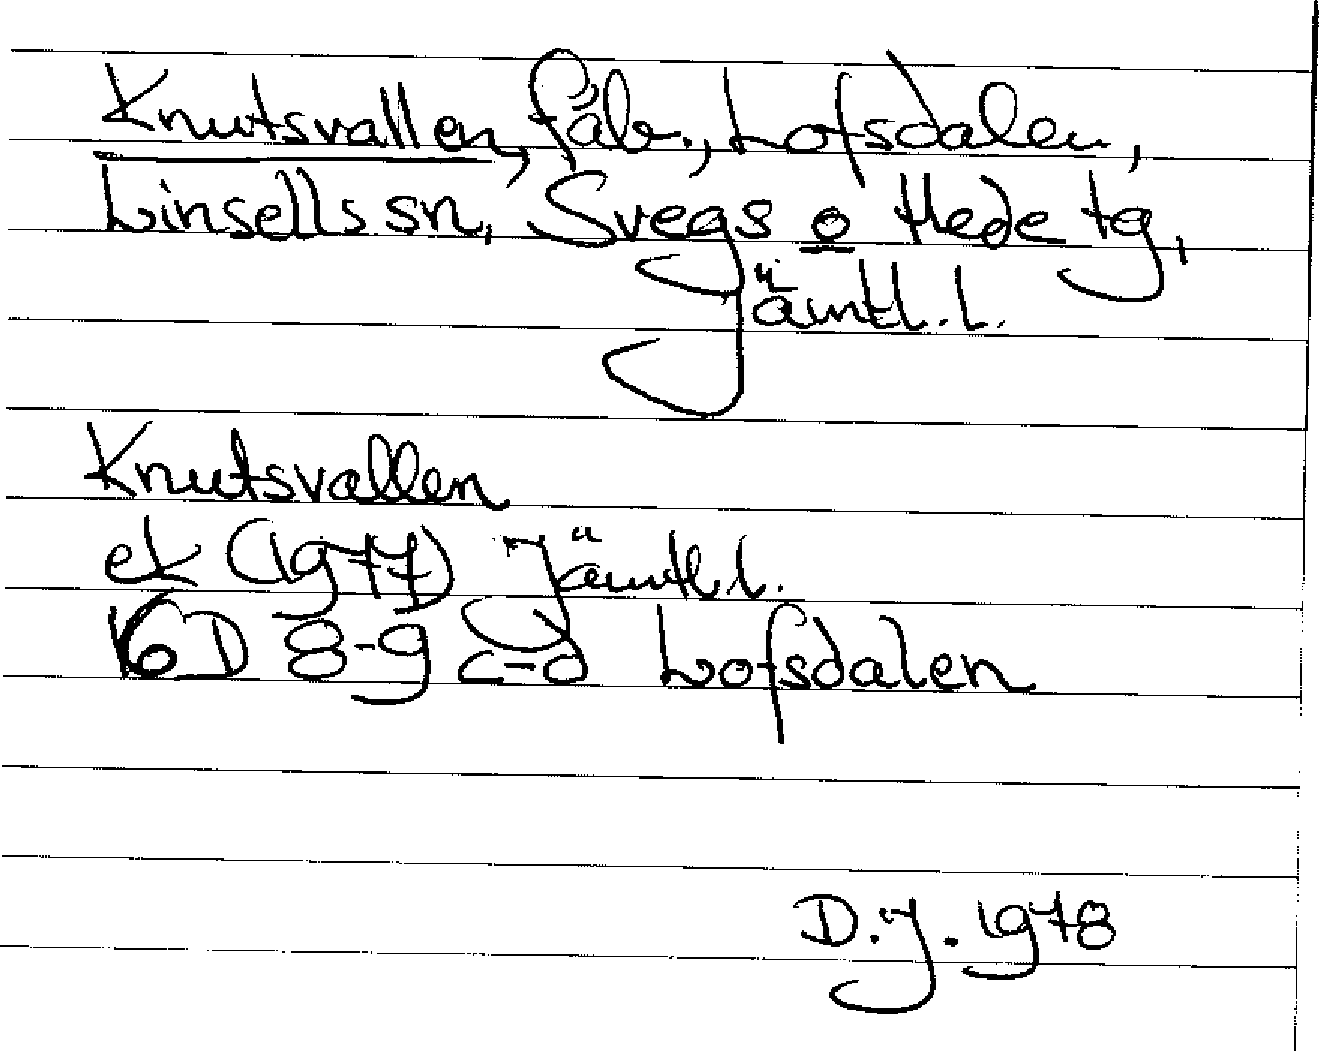 Knutsvallen, fäb., Lofsdalen,
Linsells sn, Svegs o Hede tg,
Jämtl. l.
Knutsvallen
ek (1977) Jämtl. l.
16D 8-9 c-d Lofsdalen
D.J. 1978